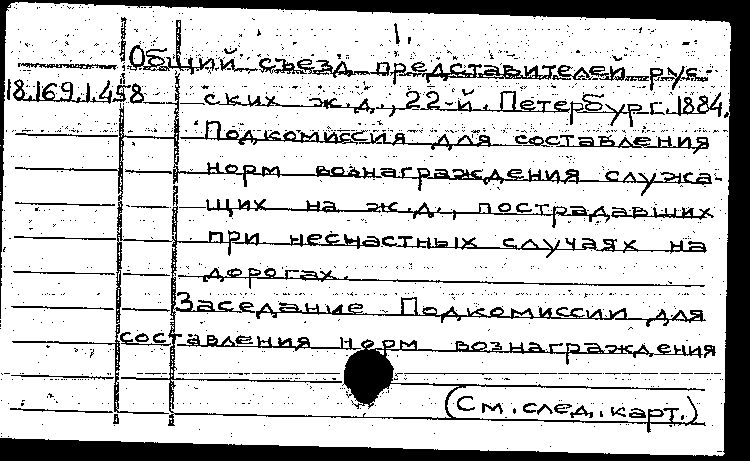 1.
Общий съезд представителей рус-
18.169.1.458 ских ж.д., 22-й. Петербург. 1884.
Подкомиссия для составления
норм вознаграждения служа-
щих на ж.д., пострадавших
при несчастных случаях на
дорогах.
Заседание Подкомиссии для
составления норм вознаграждения
(См. след. карт.)